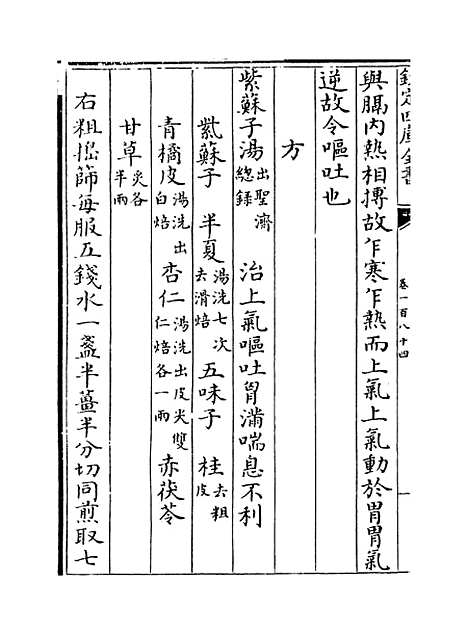 欽定四庫全書
卷一百八十四
與膈內熱相摶故乍寒乍熱而上氣上氣動於胃胃氣
逆故令嘔吐也
方
紫蘇子湯出聖濟總錄 治上氣嘔吐胷滿喘息不利
紫蘇子 半夏湯洗七次去滑焙 五味子 桂去粗皮
青橘皮湯洗出白焙 杏仁湯洗出皮尖雙仁焙各一兩 赤茯苓
甘草炙各半兩
右粗擣篩每服五錢水一盞半薑半分切同煎取七